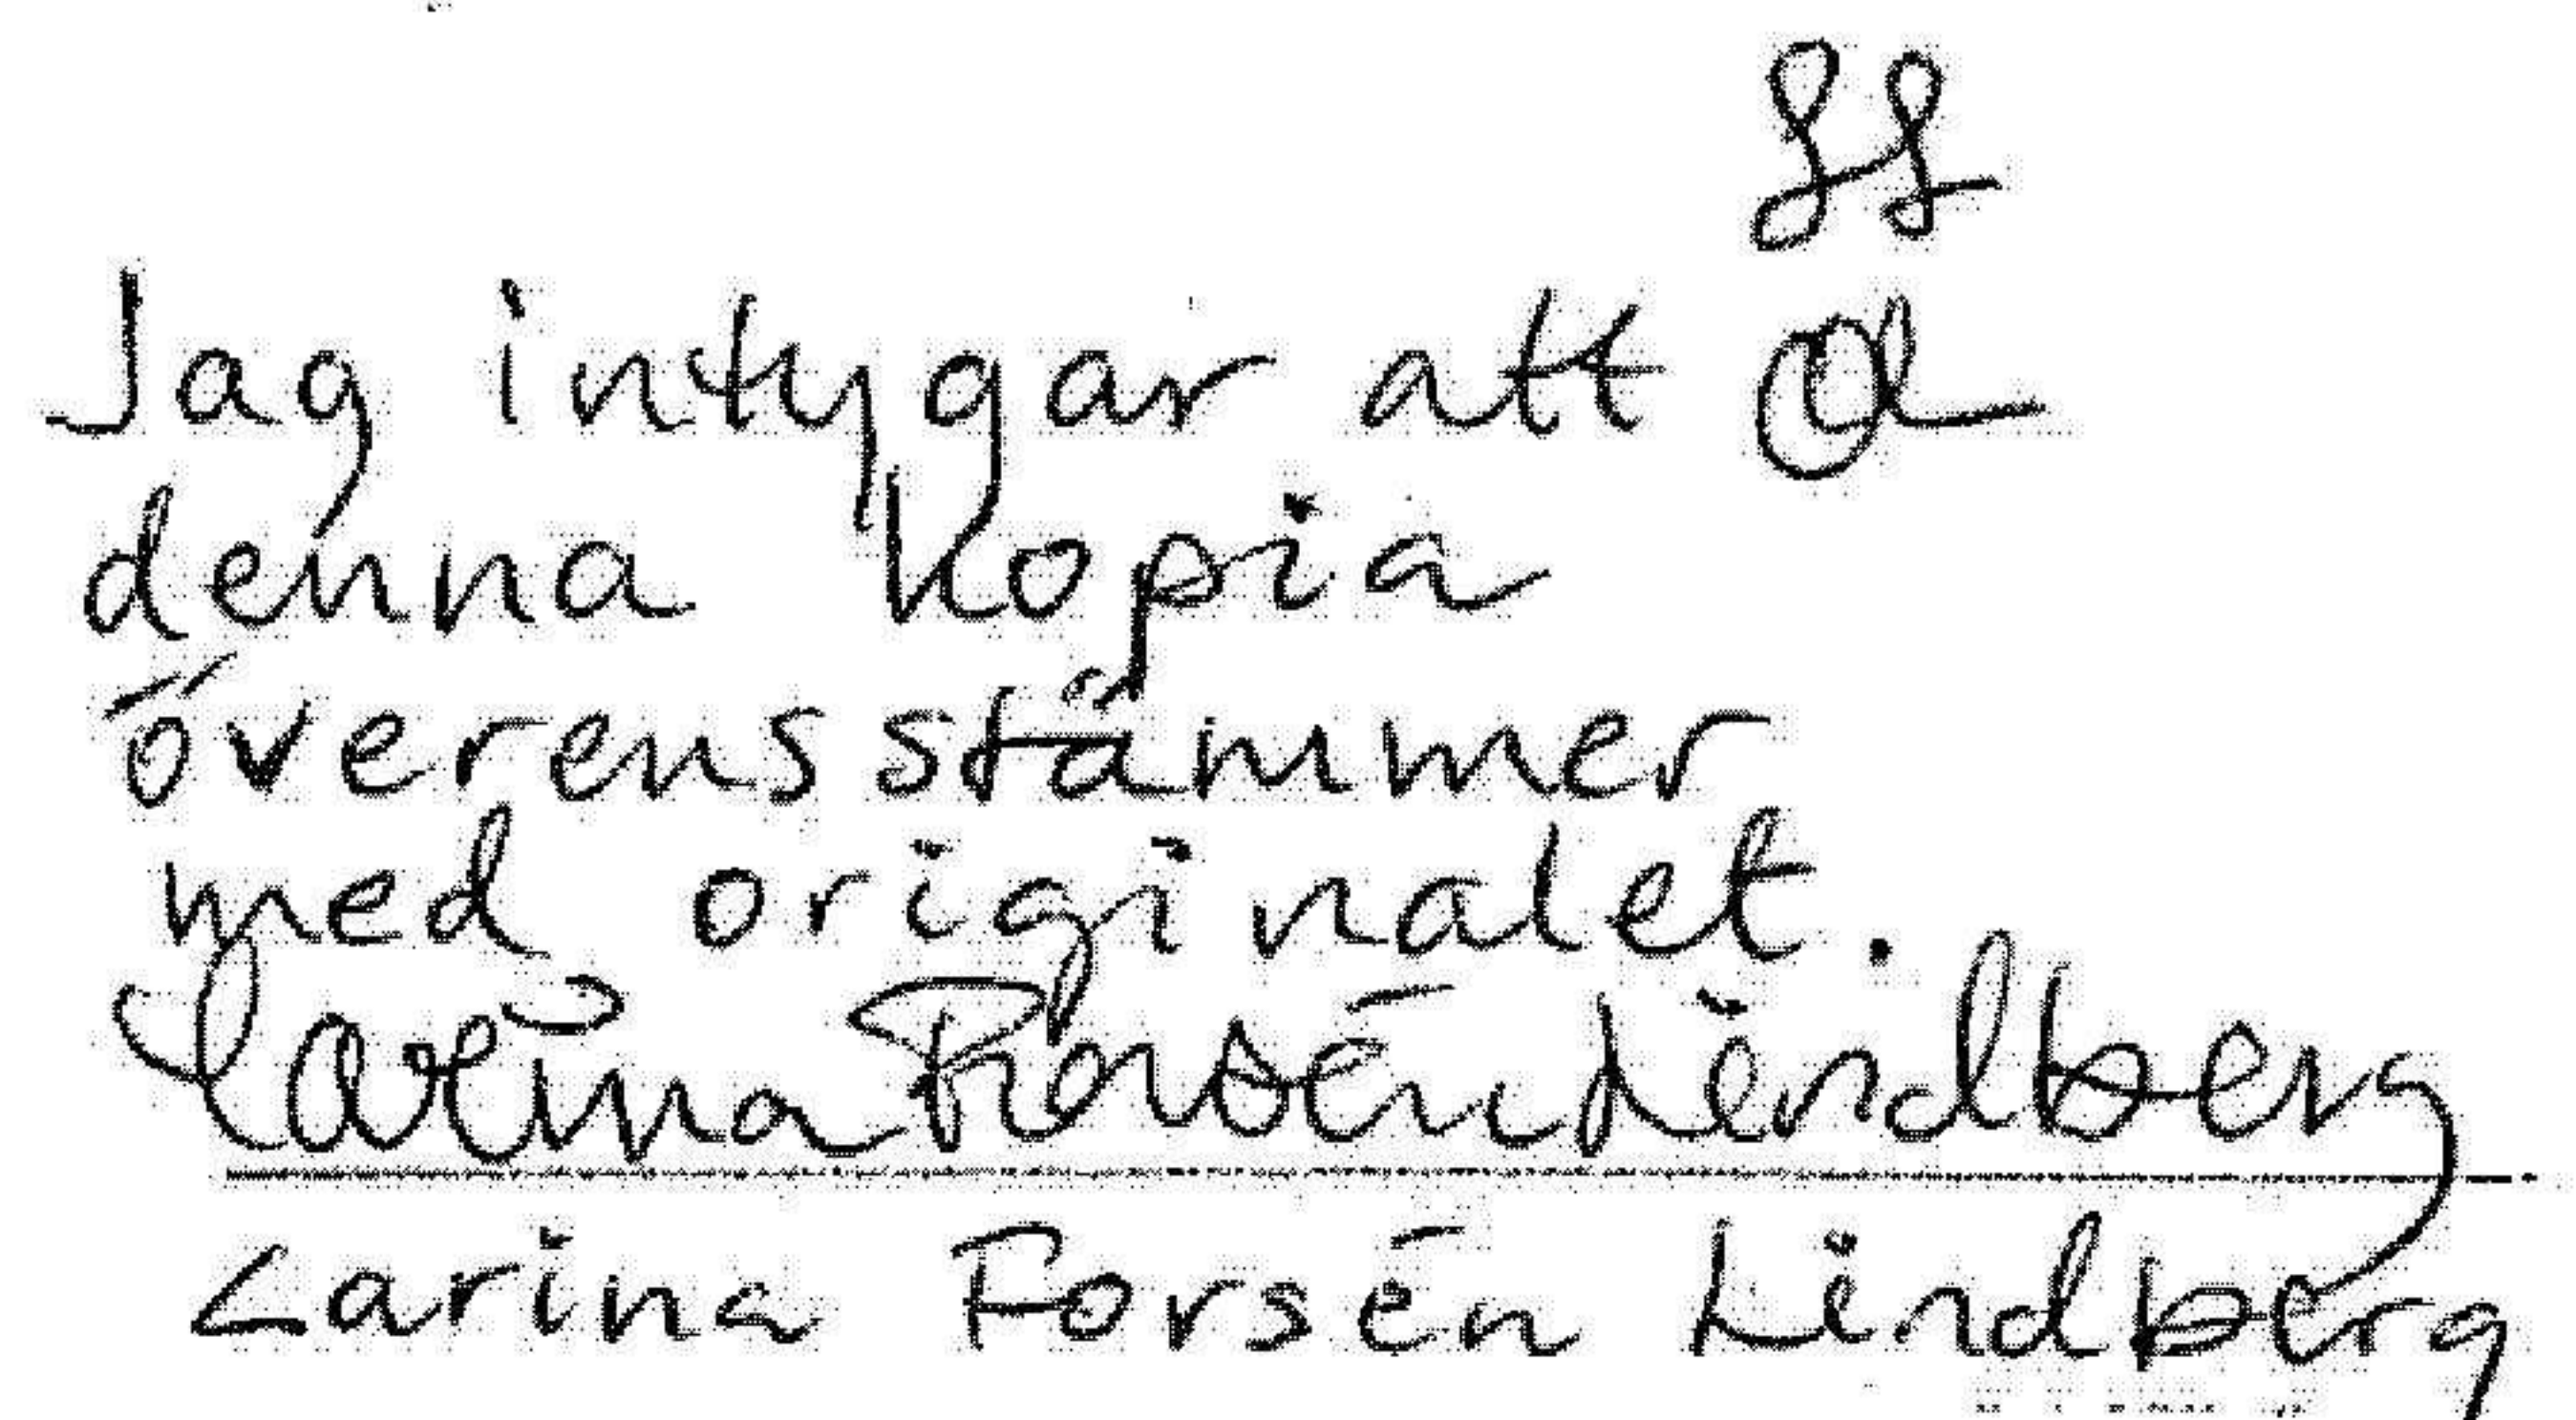 Jag intygar att
denna kopia
överensstämmer
med originalet.
Carina Forsén Lindberg
Carina Forsén Lindberg